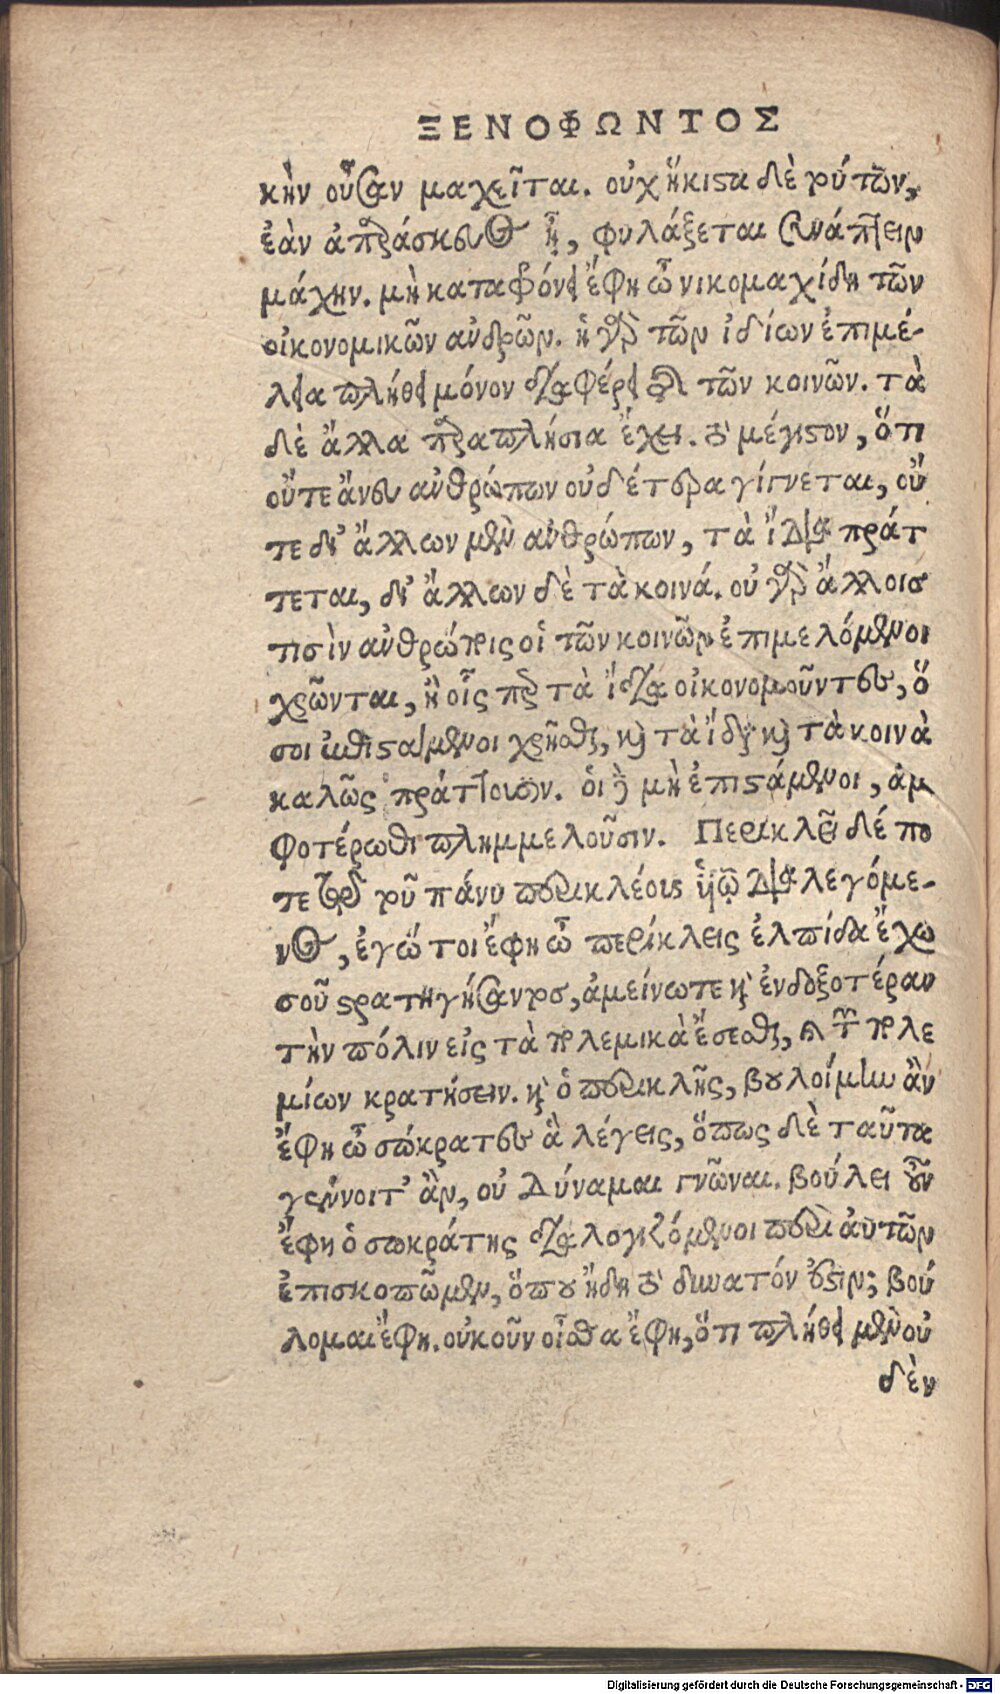 ΞΕΝΟΦΩΝΤΟΣ
κὴν οὖσαν μαχεῖται. οὐχ ἥκιστα δὲ τούτων,
ἐὰν ἀπαράσκευος ᾖ, φυλάξεται συνάπτειν
μάχην. μὴ καταφρόνει ἔφη ὦ νικομαχίδη τῶν
οἰκονομικῶν ἀνδρῶν. ἡ γὰρ τῶν ἰδίων ἐπιμέ-
λεια πλήθει μόνον διαφέρει τῆς τῶν κοινῶν. τὰ
δὲ ἄλλα παραπλήσια ἔχει. τὸ μέγιστον, ὅτι
οὔτε ἄνευ ἀνθρώπων οὐδέτερα γίγνεται, οὔ
τε δι' ἄλλων μὲν ἀνθρώπων, τὰ ἴδια πράτ
τεται, δι' ἄλλων δὲ τὰ κοινά. οὐ γὰρ ἄλλοις
τισὶν ἀνθρώποις οἱ τῶν κοινῶν ἐπιμελόμενοι
χρῶνται, ἢ οἷς περ τὰ ἴδια οἰκονομοῦντες, ὅ
σοι ἐπιστάμενοι χρῆσθαι, καὶ τὰ ἴδια καὶ τὰ κοινὰ
καλῶς πράττουσιν. οἱ δὲ μὴ ἐπιστάμενοι, ἀμ
φοτέρωθι πλημμελοῦσιν. Περικλεῖ δέ πο
τε τῷ τοῦ πάνυ περικλέους υἱῷ διαλεγόμε-
νος, ἐγώ τοι ἔφη ὦ περίκλεις ἐλπίδα ἔχω
σοῦ στρατηγήσαντος, ἀμείνω τε καὶ ἐνδοξοτέραν
τὴν πόλιν εἰς τὰ πολεμικὰ ἔσεσθαι, καὶ τῶν πολε
μίων κρατήσειν. καὶ ὁ περικλῆς, βουλοίμην ἂν
ἔφη ὦ σώκρατες ἃ λέγεις, ὅπως δὲ ταῦτα
γένοιτ' ἂν, οὐ δύναμαι γνῶναι. βούλει οὖν
ἔφη ὁ σωκράτης διαλογιζόμενοι περὶ αὐτῶν
ἐπισκοπῶμεν, ὅπου ἤδη τὸ δυνατόν ἐστιν; βού
λομαι ἔφη. οὐκοῦν οἶσθα ἔφη, ὅτι πλήθει μὲν οὐ
δὲν
Digitalisierung gefördert durch die Deutsche Forschungsgemeinschaft - DFG